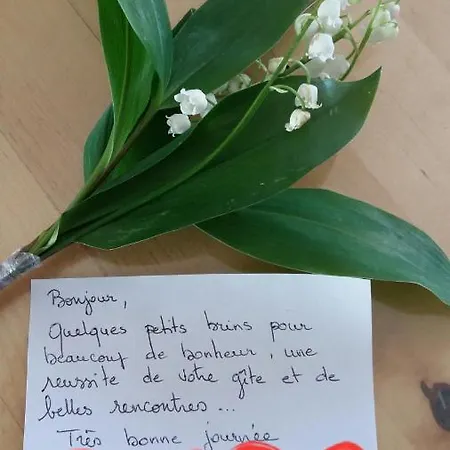 Bonjour,
Quelques petits brins pour
beaucoup de bonheur, une
reussite de votre gîte et de
belles rencontres...
Très bonne journée